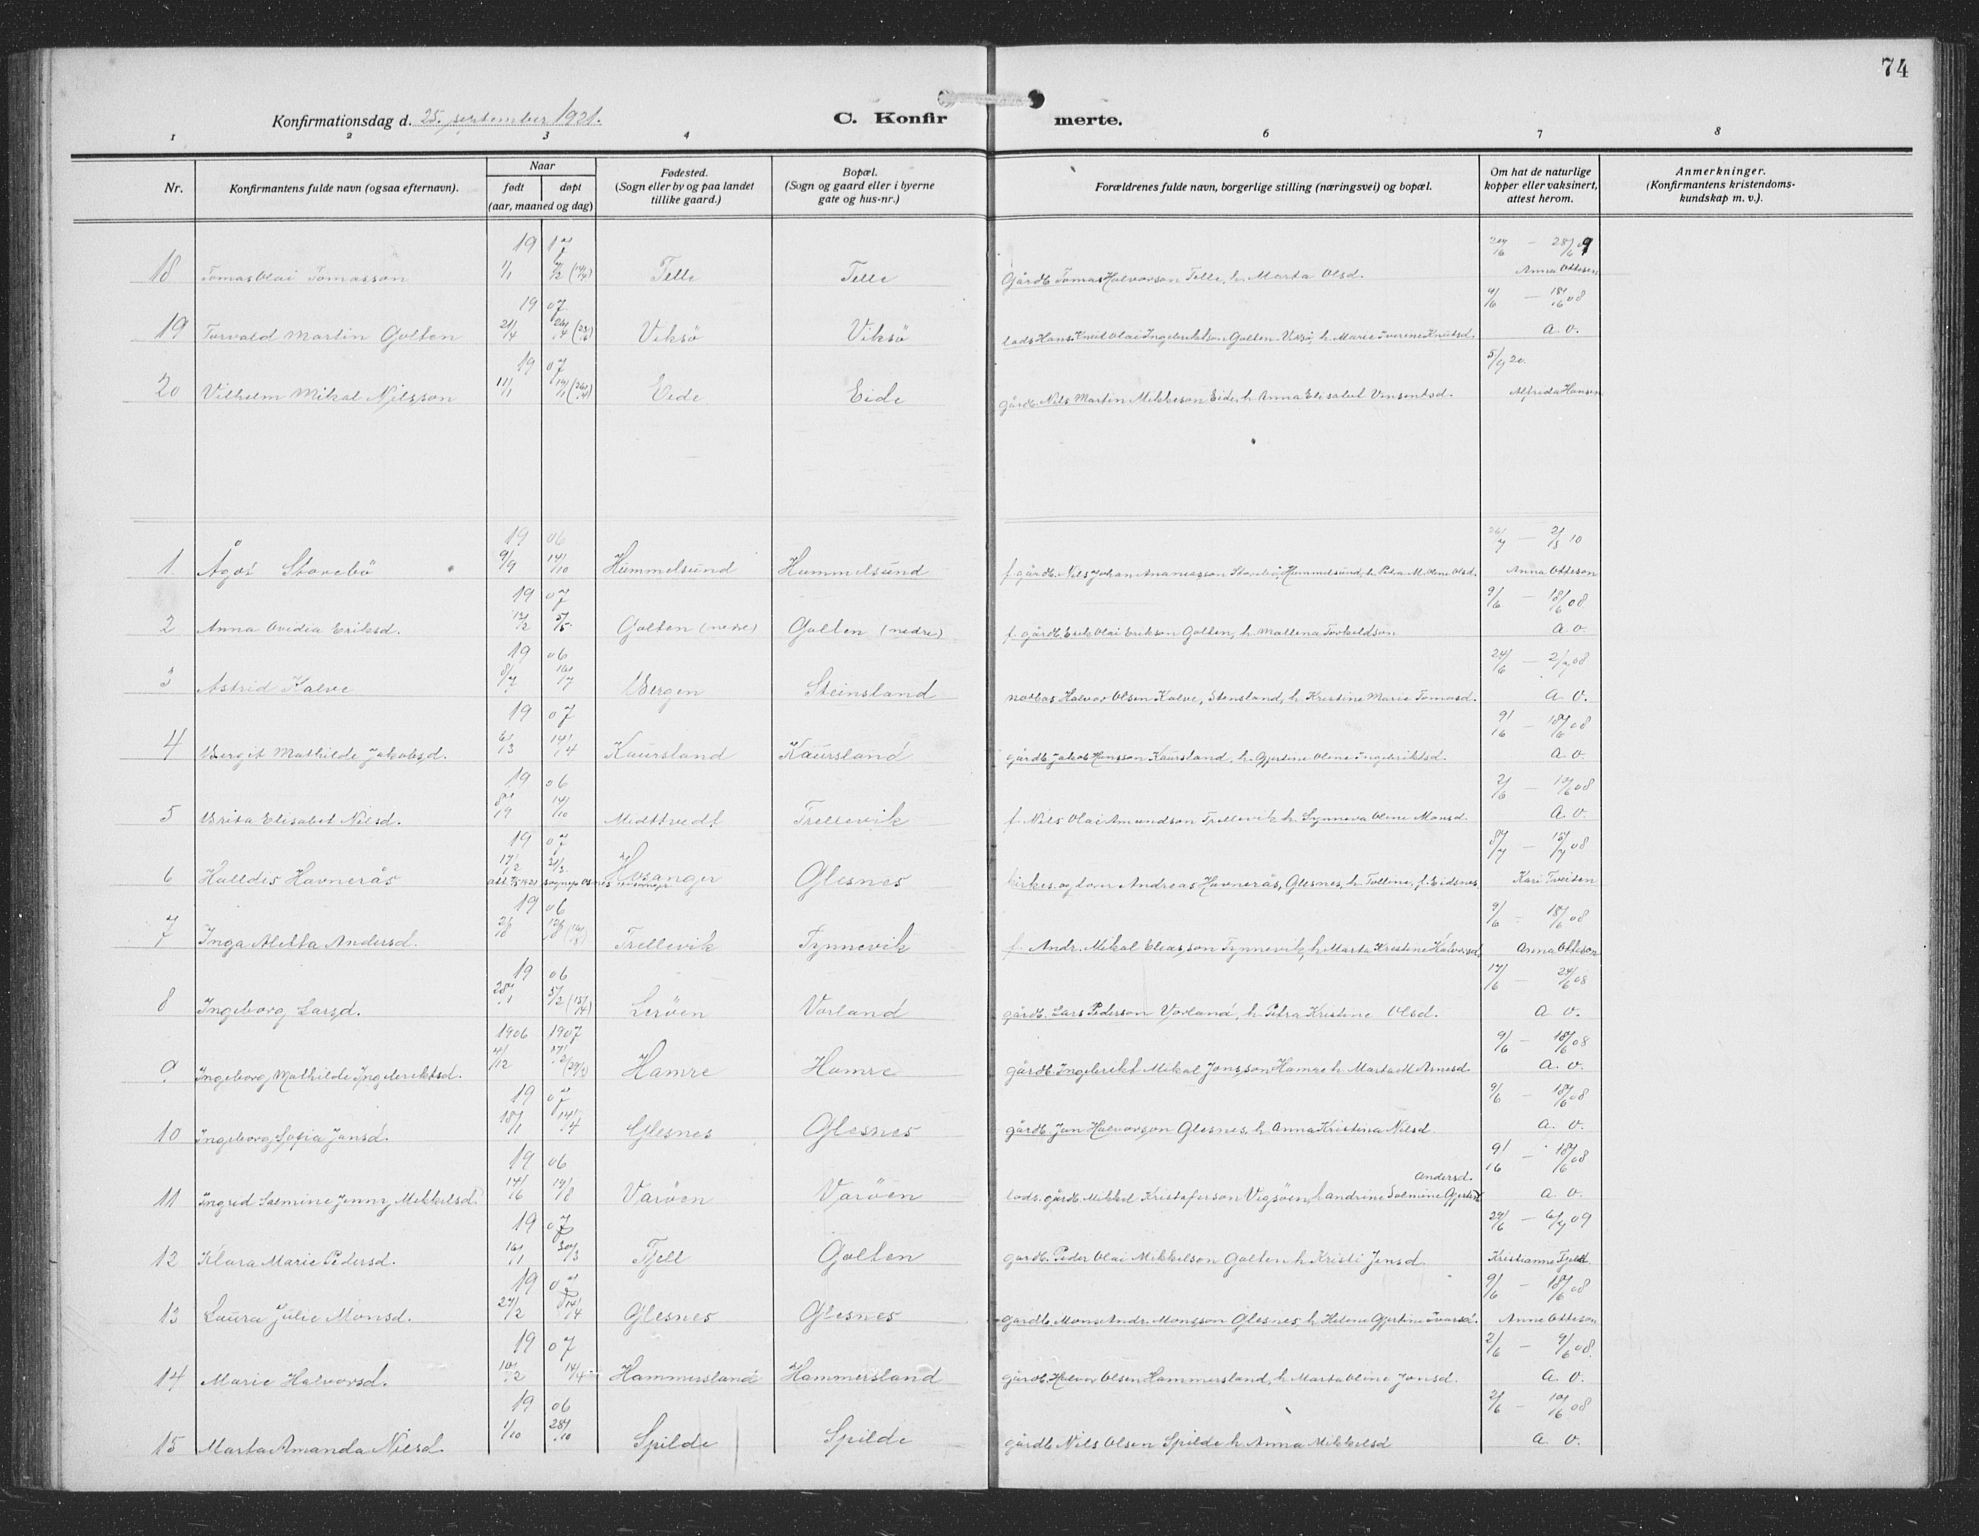 74
Konfirmationsdag d. 25. september 1921.
C. Konfirmerte.
1 2 3 4 6 7 8
Nr.
Konfirmantens fulde navn (ogsaa efternavn).
Naar
født døpt
(aar, maaned og dag)
Fødested.
(Sogn eller by og paa landet
tillike gaard.)
Bopæl.
(Sogn og gaard eller i byerne
gate og hus-nr.)
Forældrenes fulde navn, borgerlige stilling (næringsvei) og bopæl.
Om hat de naturlige
kopper eller vaksinert,
attest herom.
Anmerkninger.
(Konfirmantens kristendoms-
kundskap m. v.).
18 Tomas Olai Tomasson 1/1 Telle Telle Gårdb. Tomas Halvorson Telle, h. Marta Olsd. Anna Ottesen
19 07 4/6 — 18/6 08
19 Torvald Martin Golten 21/4 Viksö Viksö lods Hans Knut Olai Ingebriktson Golten Viksö, h. Marie Iverine Knutsd. a. o.
19 07 5/9 20.
20 Vilhelm Mikal Nilsson 11/1 Eide Eide gårdb. Nils Martin Mikkelson Eide, h. Anna Elisabet Vinsentsd. Alfreda Hansen
19 06
1 Ågot Storebö 9/9 14/10 Hummelsund Hummelsund f. gårdb. Nils Johan Ananiasson Storebö, Hummelsund, h. Petra Malene Olsd. Anna Otteson
19 07 9/6 — 18/6 08
2 Anna Ovidia Eriksd. 5/5 Golten (nedre) Golten (nedre) f. gårdb. Erik Olai Erikson Golten, h. Mallena Torkeldson a. o.
19 06 24/6 — 2/7 08
3 Astrid Kalve 8/7 Bergen Steinsland notbas Halvor Olsen Kalve, Stensland, h. Kristine Marie Tomasd. a. o.
19 07 9/6 — 18/6 08
4 Bergit Mathilde Jakobsd. 6/3 14/4 Kaursland Kaursland gårdb. Jakob Hansson Kaursland, h. Gjertine Oline Ingebriktsd. a. o.
19 06 2/6 — 10/6 08
5 Brita Elisabet Nilsd. 14/10 Midttvedt Trellevik f. Nils Olai Amundson Trellevik, h. Synneva Oline Monsd. a. o.
19 07 8/7 — 15/7 08
6 Halldis Havnerås 17/2 Hosanger Glesnes kirkes. og lærer Andreas Havnerås, Glesnes, h. Tolline, f. Eidsnes Kari Tveiten
19 06 9/6 — 18/6 08
7 Inga Aletta Andersd. Trellevik Tynnevik f. Andr. Mikal Eliasson Tynnevik, h. Marta Kristine Halvorsd. Anna Otteson
19 06 17/6 24/6 08
8 Ingeborg Larsd. 28/1 5/2 (15/4) Leröen Vorland gårdb. Lars Pederson Vorland, h. Petra Kristine Olsd. a. o.
1906 1907 9/6 — 18/6 08
9 Ingeborg Mathilde Ingebriktsd. 4/12 Hamre Hamre gårdb. Ingebrikt Mikal Jonsson Hamre h. Marta M. Arnesd. a. o.
19 07 9/6 — 18/6 08
10 Ingeborg Sofia Jonsd. 18/1 14/4 Glesnes Glesnes gårdb. Jon Halvorson Glesnes, h. Anna Kristina Nilsd. a. o.
19 06 9/6 — 18/6 08
Andersd.
11 Ingrid Salmine Jenny Mikkelsd. 14/6 19/8 Varöen Varöen lods. gårdb. Mikkel Kristoferson Vigsöen, h. Andrine Salmine Gjertine a. o.
19 07 29/6 — 6/7 09
12 Klara Marie Pedersd. 16/1 30/3 Fjell Golten gardb. Peder Olai Mikkelson Golten h. Kristi Jensd. Kristianne Fjeldt
19 07 9/6 — 18/6 08
13 Laura Julie Monsd. 27/2 14/4 Glesnes Glesnes gardb. Mons Andr. Monsson Glesnes, h. Helene Gjertine Ivarsd. Anna Otteson
19 07 2/6 — 9/6 08.
14 Marie Halvorsd. 10/2 14/4 Hammersland Hammersland gårdb. Halvor Olsen Hammersland, h. Marta Oline Jonsd. a. o.
19 06 2/6 — 10/6 08
15 Marta Amanda Nilsd. 1/10 28/10 Spilde Spilde gårdb. Nils Olsen Spilde h. Anna Mikkelsd a. o.